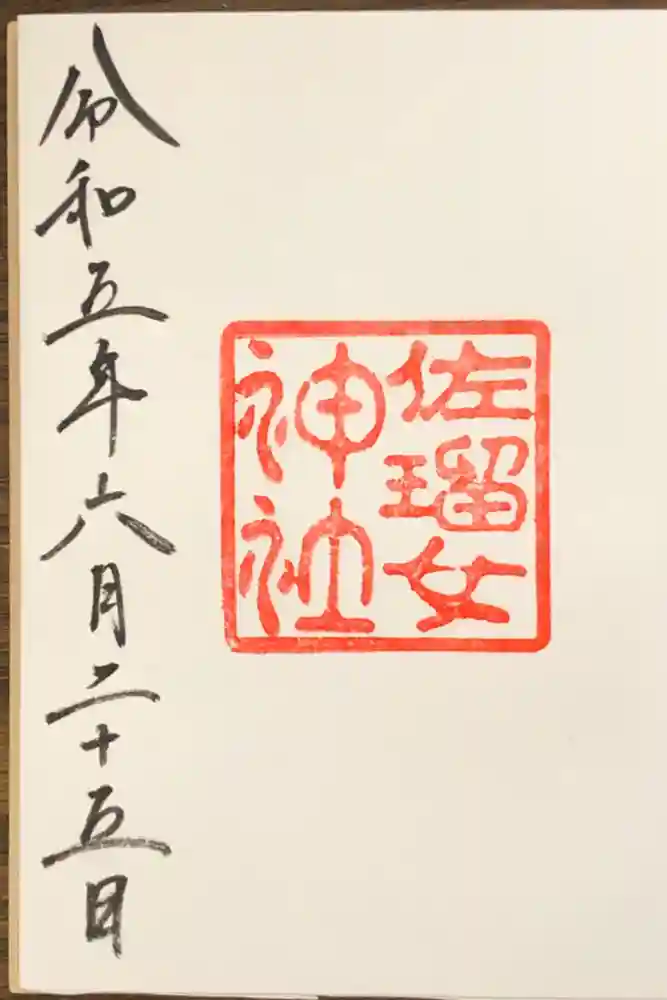 佐瑠女
神社
令和五年六月二十五日